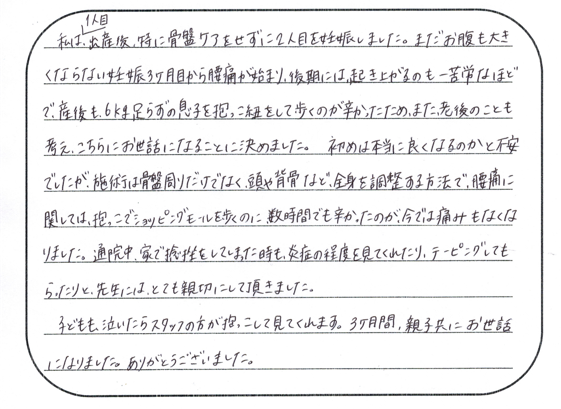 1人目
私は、出産後、特に骨盤ケアをせずに2人目を妊娠しました。まだお腹も大き
くならない妊娠3ヶ月目から腰痛が始まり、後期には、起き上がるのも一苦労なほど
で、産後も、6kg足らずの息子を抱っこ紐をして歩くのが辛かったため、また、老後のことも
考え、こちらにお世話になることに決めました。 初めは本当に良くなるのかと不安
でしたが、施術は骨盤周りだけでなく、頭や背骨など、全身を調整する方法で、腰痛に
関しては、抱っこでショッピングモールを歩くのに数時間でも辛かったのが、今では痛みもなくな
りました。通院中、家で捻挫をしてしまった時も、炎症の程度を見てくれたり、テーピングしても
らったりと、先生には、とても親切にして頂きました。
子どもも、泣いたらスタッフの方が抱っこして見てくれます。3ヶ月間、親子共にお世話
になりました。ありがとうございました。